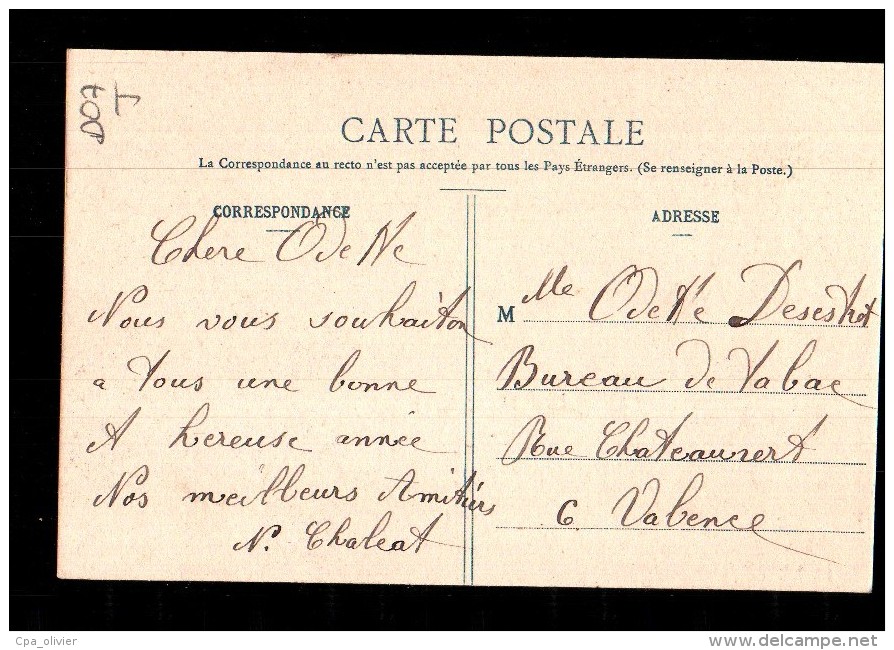 CARTE POSTALE
La Correspondance au recto n'est pas acceptée par tous les Pays Étrangers. (Se renseigner à la Poste.)
CORRESPONDANCE
Chere Odette
Nous vous souhaiton
a Tous une bonne
et hereuse année
Nos meilleurs Amitiés
N. Chaleat
ADRESSE
Mlle Odette
Bureau de Tabac
Rue Chateauvert
6 Valence
Cpa_olivier
delcampe.net